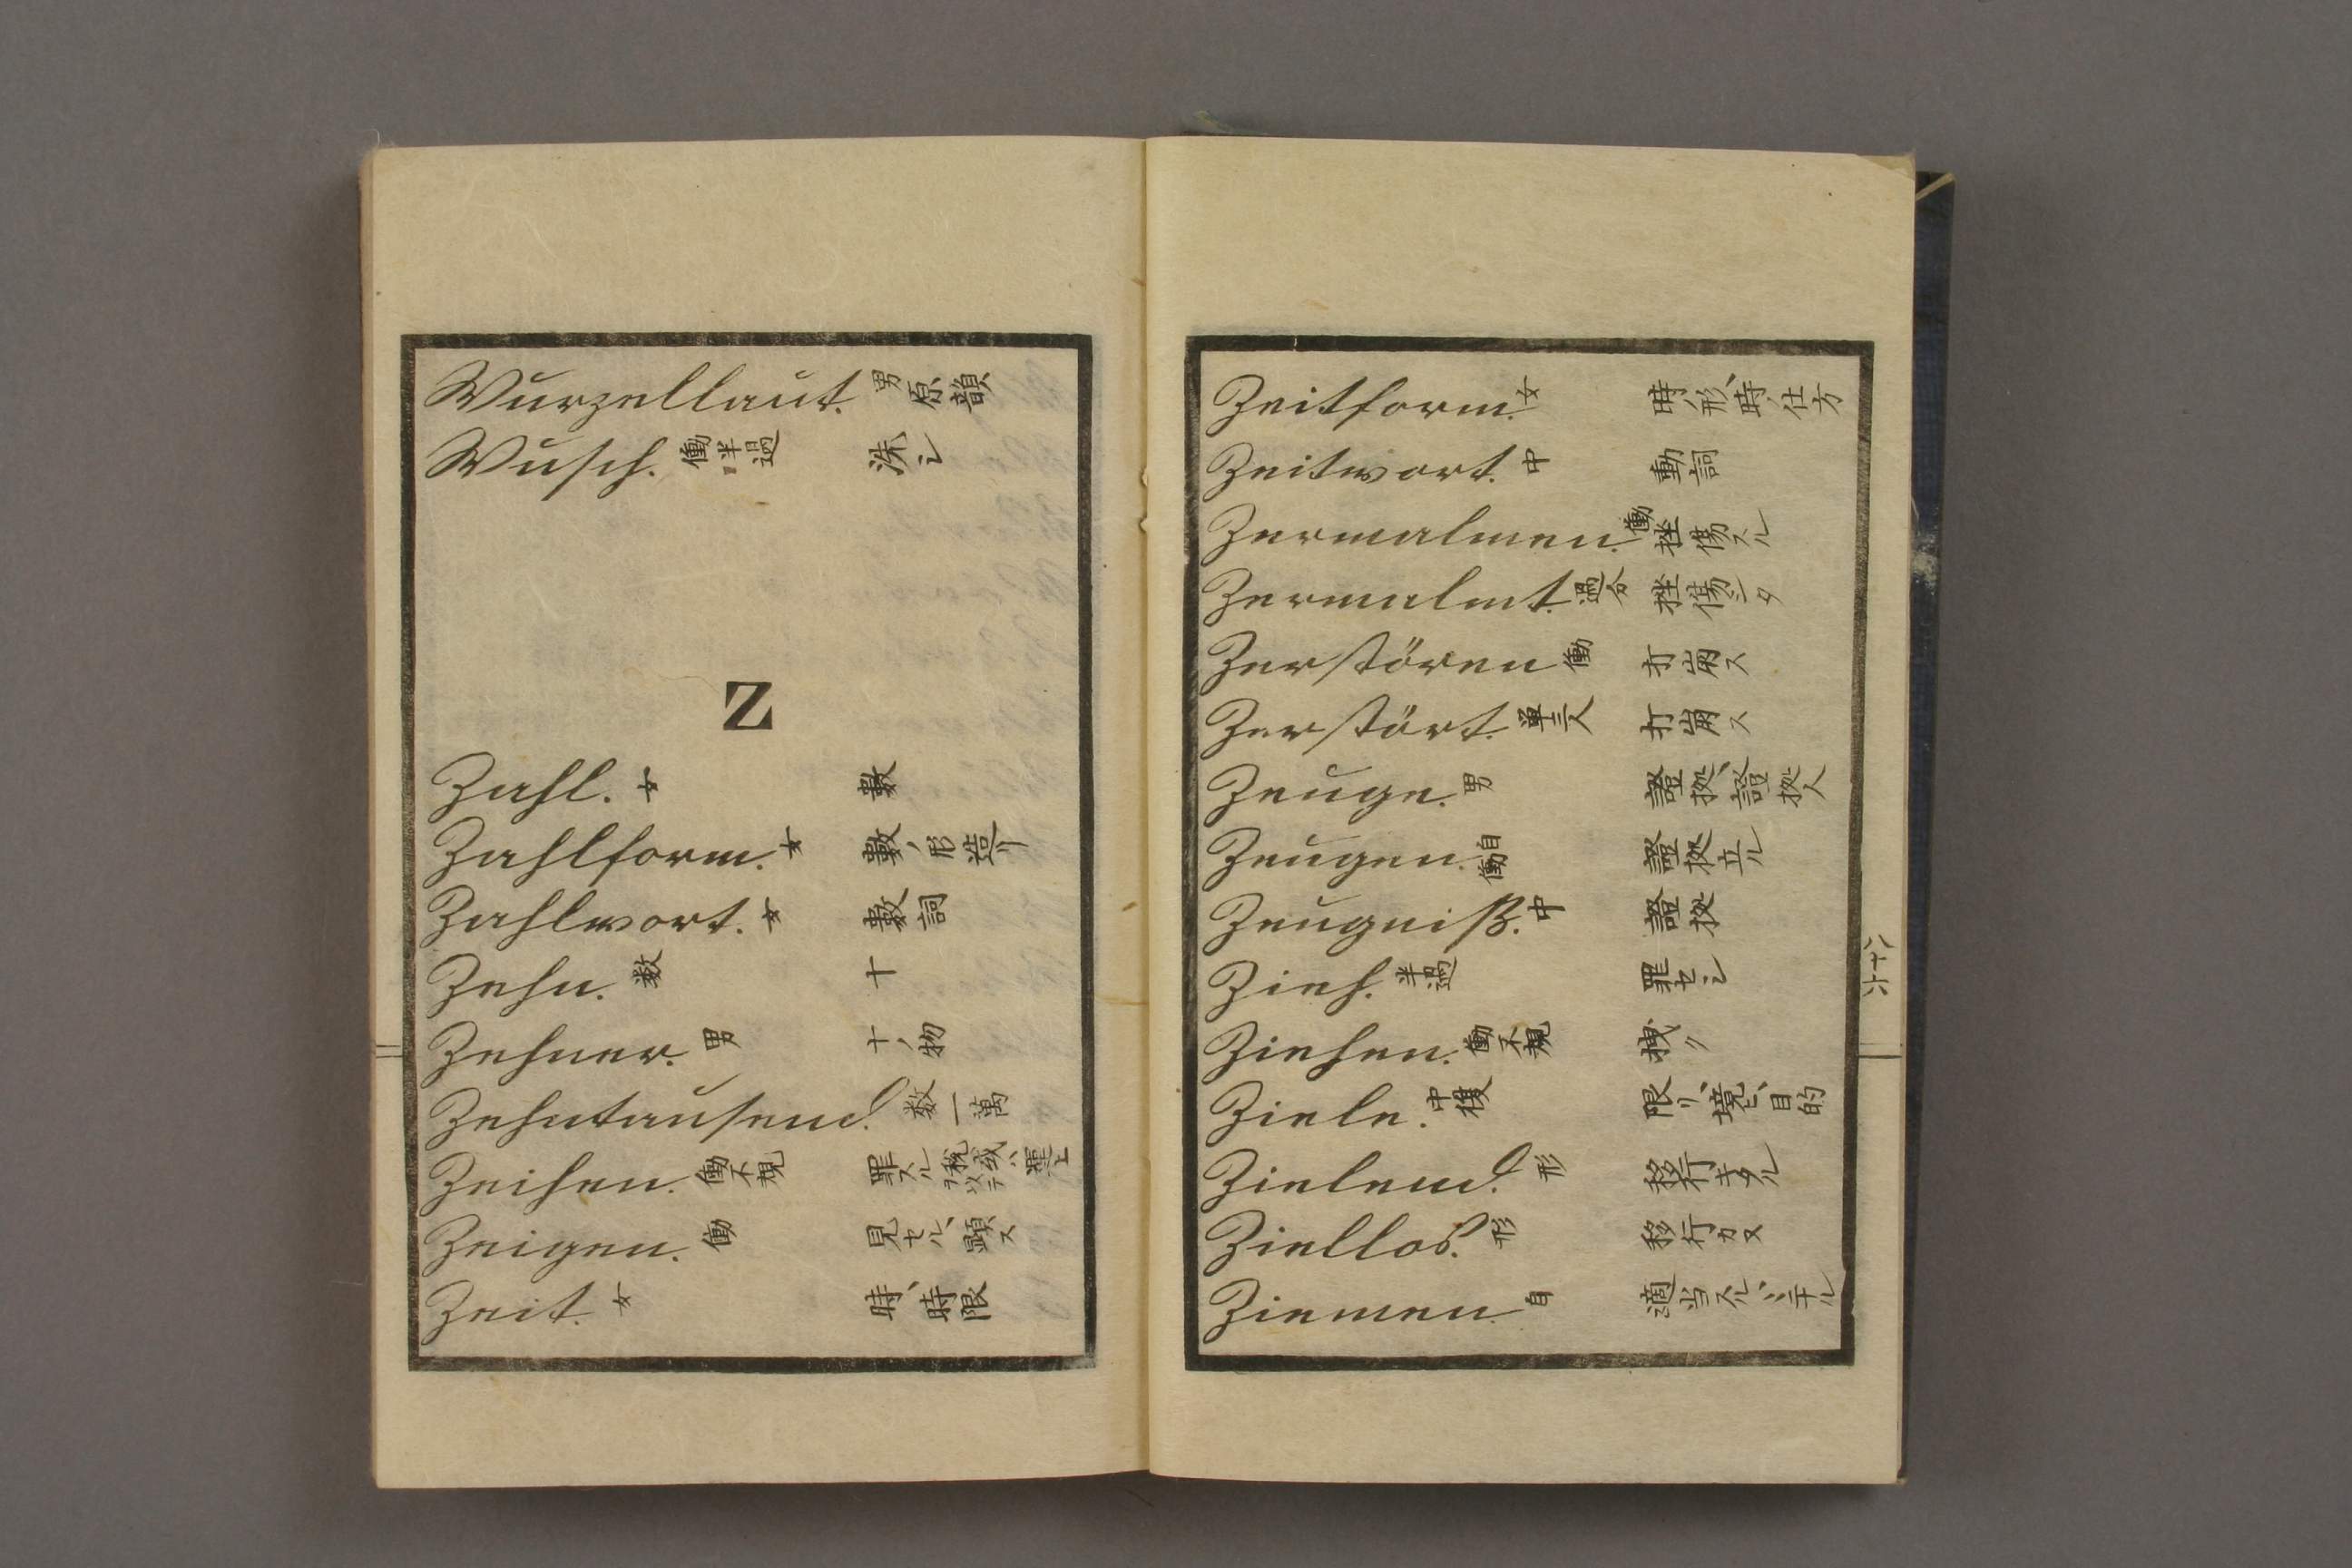 Wurzellaut. 男 原韻
Wusch. 働半過 洗シ
Z
Zahl. 女 數
Zahlform. 女 數ノ形造リ
Zahlwort. 女 數詞
Zehn. 数 十
Zehner. 男 十ノ物
Zehntausend. 数 一萬
Zeihen. 働不規 罪スル
Zeigen. 働 見セル、顕ス
Zeit. 女 時、時限
Zeitform. 女 時ノ形、時ノ仕方
Zeitwort. 中 動詞
Zermalmen. 働 挫傷スル
Zermalmt. 過分 挫傷シタ
Zerstören 働 打崩ス
Zerstört. 単三人 打崩ス
Zeuge. 男 證拠、證拠人
Zeugen. 自働 證拠立ル
Zeugniß. 中 證拠
Zieh. 半過 罪セシ
Ziehen. 働不規 拽ク
Ziele. 中複 限リ、境ヒ、目的
Zielend. 形 移行キタル
Ziellos. 形 移行カヌ
Ziemen. 自 適当スル